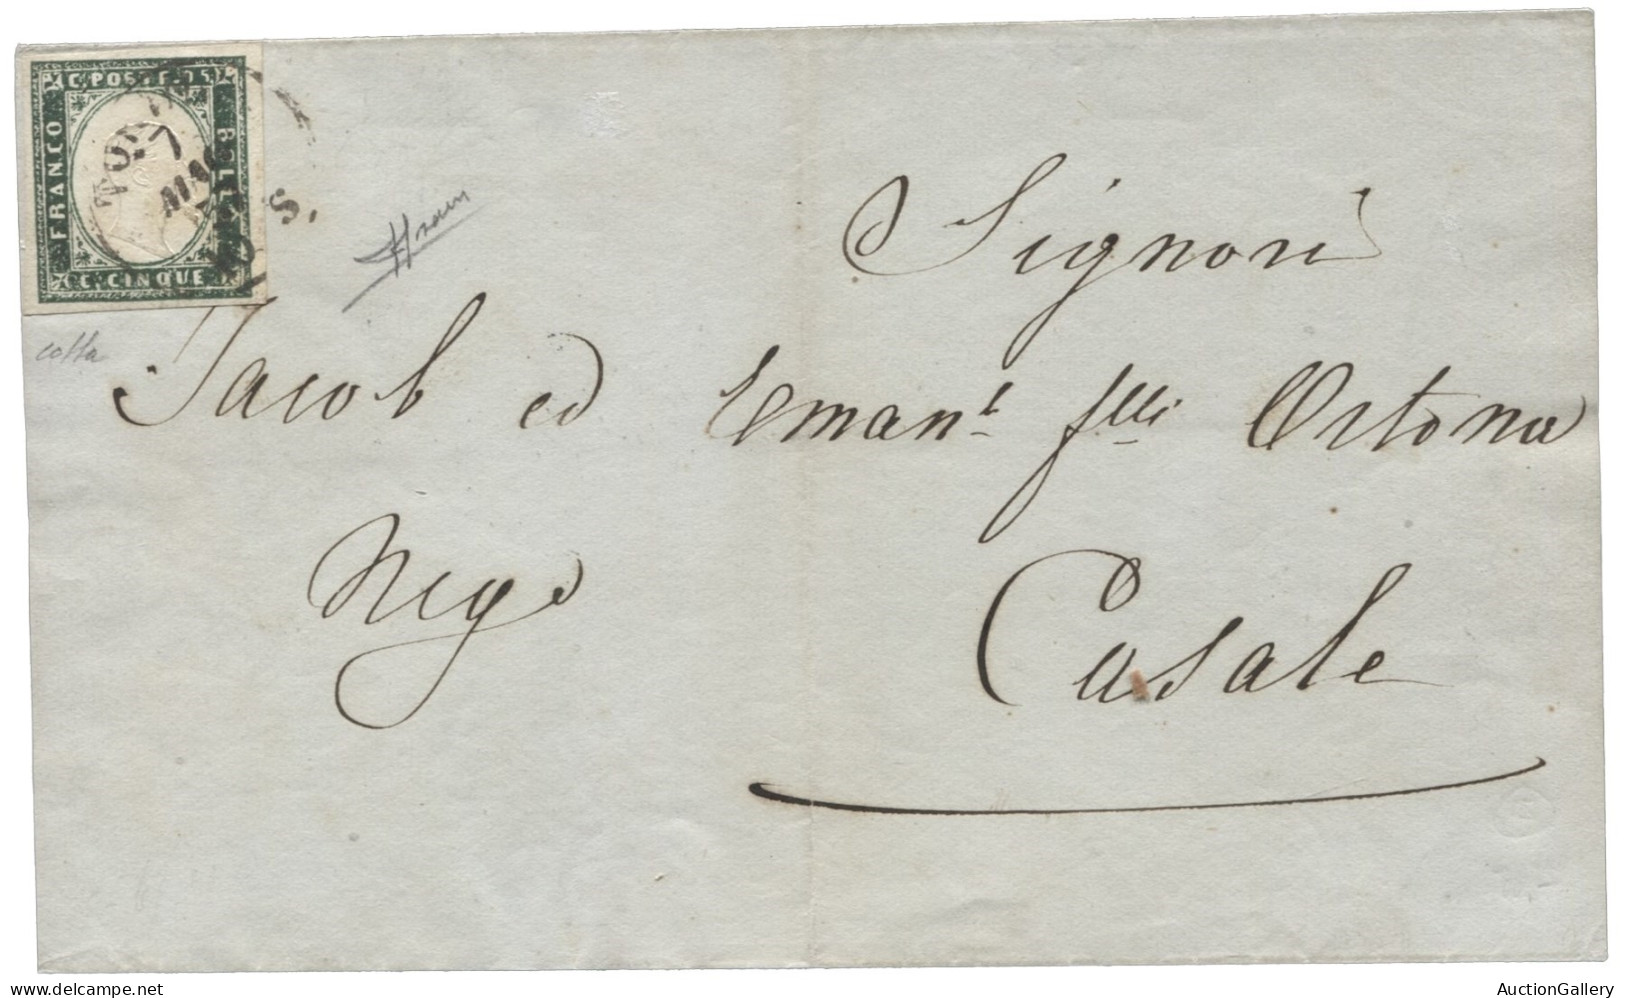 C. POSTE. 15
FRANCO
BOLLO
C. CINQUE
TORINO
7
MAG
10 S.
Signori
Jacob ed Eman.l f.lli Ortona
Neg.
Casale
www.delcampe.net
AuctionGallery